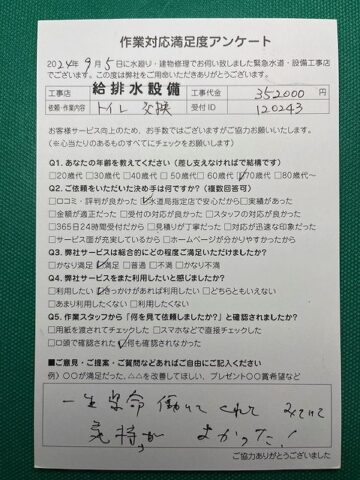 作業対応満足度アンケート
2024年9月5日に水廻り・建物修理でお伺い致しました緊急水道・設備工事店
でございます。この度は弊社をご用命いただきありがとうございます。
工事店 給排水設備 工事代金 352000 円
依頼・作業内容 トイレ 交換 受付ID 120243
お客様サービス向上のため、お手数ではございますがご協力お願いいたします。
(※心当たりのあるものすべてにチェックをお願いします)
Q1. あなたの年齢を教えてください(差し支えなければで結構です)
□20歳代 □30歳代 □40歳代 □50歳代 □60歳代 ☑70歳代 □80歳代〜
Q2. ご依頼をいただいた決め手は何ですか?(複数回答可)
□口コミ・評判が良かった ☑水道局指定店で安心だから □実績があった
□金額が適正だった □受付の対応が良かった □スタッフの対応が良かった
□365日24時間受付だから □見積りが丁寧だった □対応が迅速な印象だった
□サービス面が充実しているから □ホームページが分かりやすかったから
Q3. 弊社サービスは総合的にどの程度ご満足いただけましたか?
□かなり満足 ☑満足 □普通 □不満 □かなり不満
Q4. 弊社サービスをまた利用したいと感じましたか?
□利用したい ☑きっかけがあれば利用したい □どちらともいえない
□あまり利用したくない □利用したくない
Q5. 作業スタッフから「何を見て依頼しましたか?」と確認されましたか?
□用紙を渡されてチェックした □スマホなどで直接チェックした
□口頭で確認された ☑何も確認されなかった
■ご意見・ご提案・ご質問などあればご自由にご記入ください
例)〇〇が満足だった、△△を改善してほしい、プレゼント〇〇賞希望など
一生県命 働いて くれて みていて
気持が よかった!
ご協力ありがとうございました